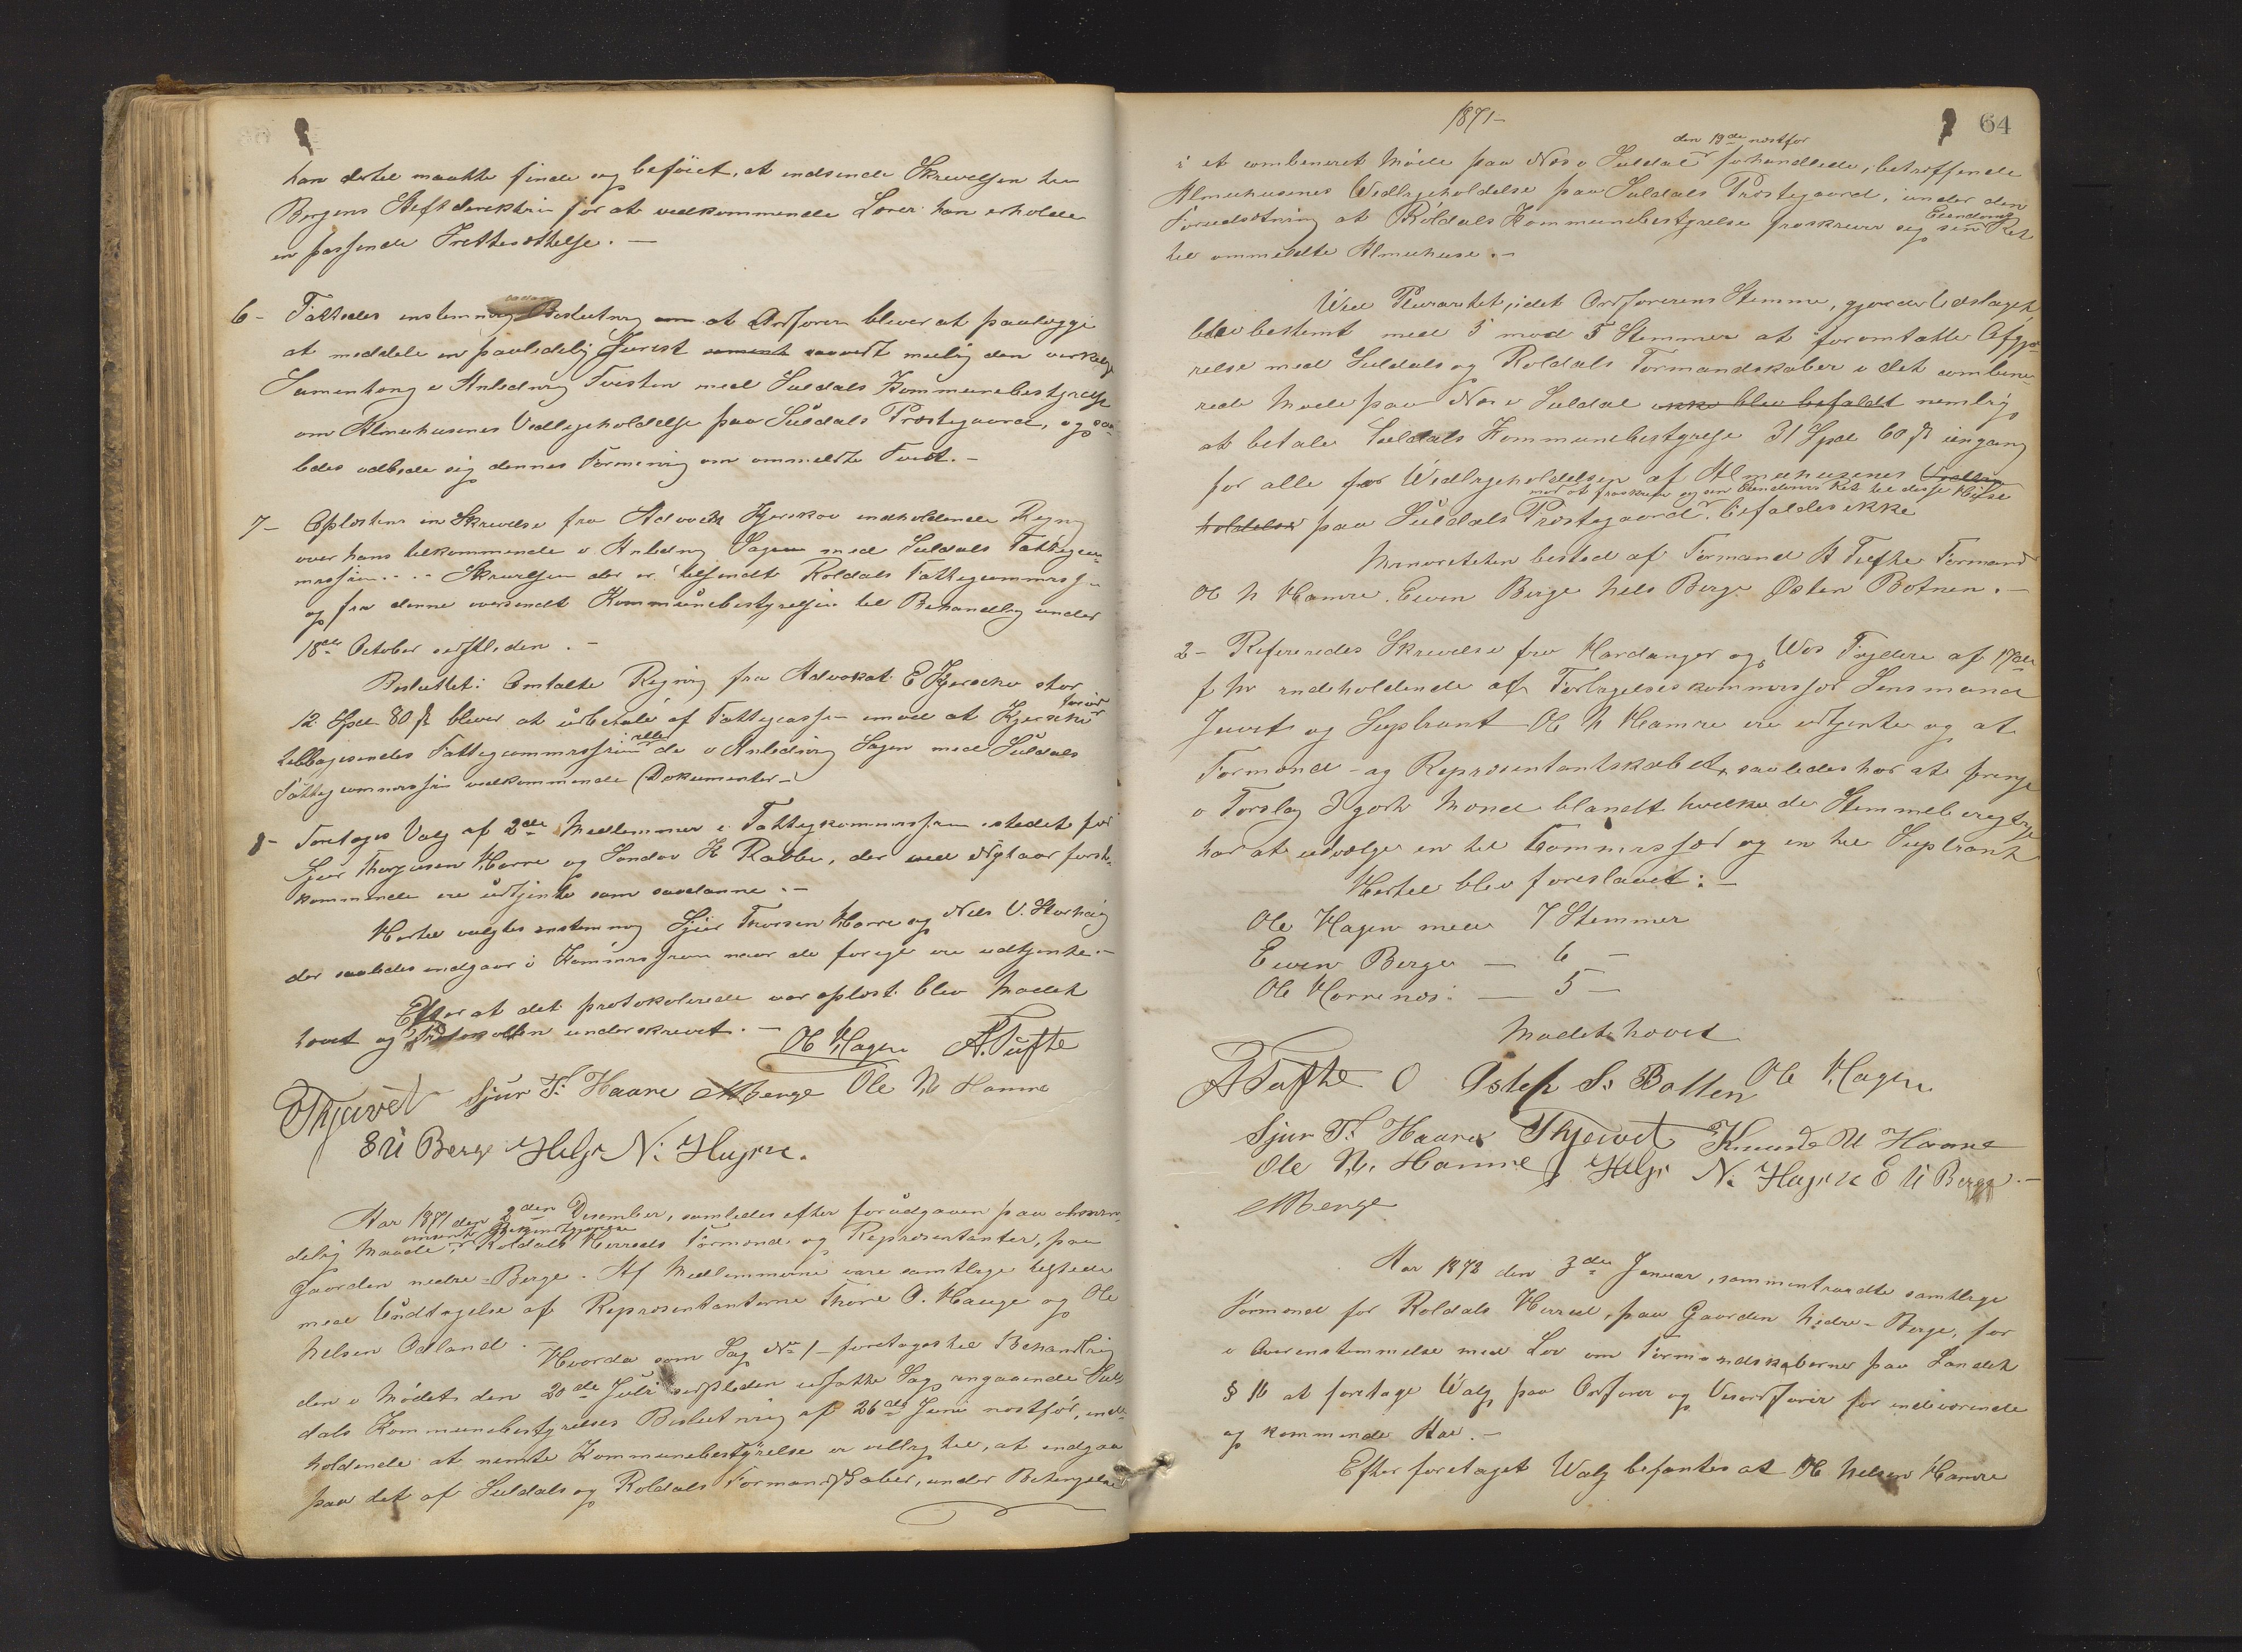 han dertil maatte finde sig beføiet, at indsende Skrivelsen til
Bergens Stiftdirektion for at vedkommende Lærer kan erholde
en passende Irettesættelse. —
6 - Fattedes enstemmig Beslutning om at Ordføreren bliver at paalægge
at meddele en paalidelig Jurist saavidt muelig den virkelige
Samenhæng i Anledning Tvisten med Suldals Kommunebestyrelse
om Almuehusenes Vedligeholdelse paa Suldals Præstegaard, og saa-
ledes udbede sig dennes Formening om ommeldte Tvist. -
7 - Oplæstes en Skrivelse fra Advocat Kjerschov indholdende Regning
over hans tilkommende i Anledning Sagen med Suldals Fattigcom-
mission. - Skrivelsen der er tilsendt Roldals Fattigcommission
og fra denne oversendt Kommunebestyrelsen til Behandling under
18de October sidstleden. -
Besluttet: Omtalte Regning fra Advokat E Kjerschov stor
12 Spd 80 s bliver at udbetale af Fattigcassen imod at Kjerschov forinden
tilbagesender Fattigcommissionen alle de i Anledning Sagen med Suldals
Fattigcommission vedkommende Dokumenter -
8 - Foretages Valg af 2de Medlemmer i Fattigkommissionen istedet for
Sjur Thorsen Horre og Sondov K Rabbe, der ved Nytaar først-
kommende ere udtjente som saadanne. -
Hertil valgtes enstemmig Sjur Thorsen Horre og Nils V. Storhaug
der saaledes indgaar i Kommissionen naar de forrige ere udtjente. -
Efter at det protokolerede var oplæst blev Mødet
hævet og Protokollen underskrevet. - Ol Hagen A. Tufte
Thjuvet Sjur T. Haare NBerge Ole N Hamre
E U Berge Helje N. Hagen.
Aar 1871 den 2den Desember, samledes efter forudgaaen paa almin-
omsendt Bekjentgjørelse
delig Maade, Roldals Herreds Formænd og Repræsentanter, paa
Gaarden nedre-Berge. Af Medlemmerne vare samtlige tilstede
med Undtagelse af Repræsentanterne Thore O. Hauge og Ole
Nelsen Øsland. - Hvorda som Sag No 1 - foretages til Behandling
den i Mødet den 20de Juli sidstleden udsatte Sag angaaende Sul-
dals Kommunebestyrelses Beslutning af 26de Juni næstfør, inde-
holdende at nemte Kommunebestyrelse er villig til, at indgaa
paa det af Suldals og Roldals Formandskaber, under Betingelse
1871 - 64
den 19de næstfør
i et combineret Møde paa Næs i Suldal forhandlede, betræffende
Almuehusenes Vedligeholdelse paa Suldals Præstegaard, under den
Forudsætning at Röldals Kommunebestyrelse fraskriver sig sin Eiendoms Ret
til ommeldte Almuehuse. -
Ved Pluraritet, idet Ordførerens Stemme, gjorde Udslaget
blev bestemt med 5 mod 5 Stemmer at foromtalte Afgjø-
relse med Suldals og Roldals Formandskaber i det combine-
rede Møde paa Næs i Suldal ikke blev befaldt nemlig
at betale Suldals Kommunebestyrelse 31 Spd 60 s engang
for alle for Vedligeholdelsen af Almuehusenes Vedlige
mod at fraskrive sig sin Eiendoms Ret til disse Huse
holdelse paa Suldals Præstegaard befaldes ikke
Minoriteten bestod af Formand A Tufte Formand
Ol N Hamre. Even Berge Nels Berge Østen Botnen. -
2 - Refereredes Skrivelse fra Hardanger og Vos Fogderi af 17de
f M indeholdende at Forligelseskommissær Lensmand
Juvet og Suplrant Ol N Hamre ere udtjente og at
Formænd- og Repræsentantskabet, saaledes har at bringe
i Forslag 3 gode Mænd blandt hvilke de Stemmeberegtige
har at udvælge en til Commissær og en til Suplrant
Hertil blev foreslaaet: -
Ole Hagen med 7 Stemmer
Even Berge — 6 -
Ol Horrenes. — 5 -
Mødet hævet
A Tufte O Østen S. Botten Ole Hagen
Sjur T. Haare Thjuvet Knud U Haare
Ole N. Hamre Helje N. Hagen E U Berge. -
NBerge
Aar 1872 den 3de Januar, sammentraadte samtlige
Formænd for Roldals Herred, paa Gaarden Nedre-Berge, for
i Overenstemmelse med Lov om Formandskaberne paa Landet
§ 16 at foretage Valg paa Ordfører og Viseordfører for indeværende
og kommende Aar. -
Efter foretaget Valg befantes at Ol Nelsen Hamre